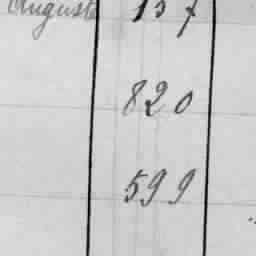 Auguste 157
820
599